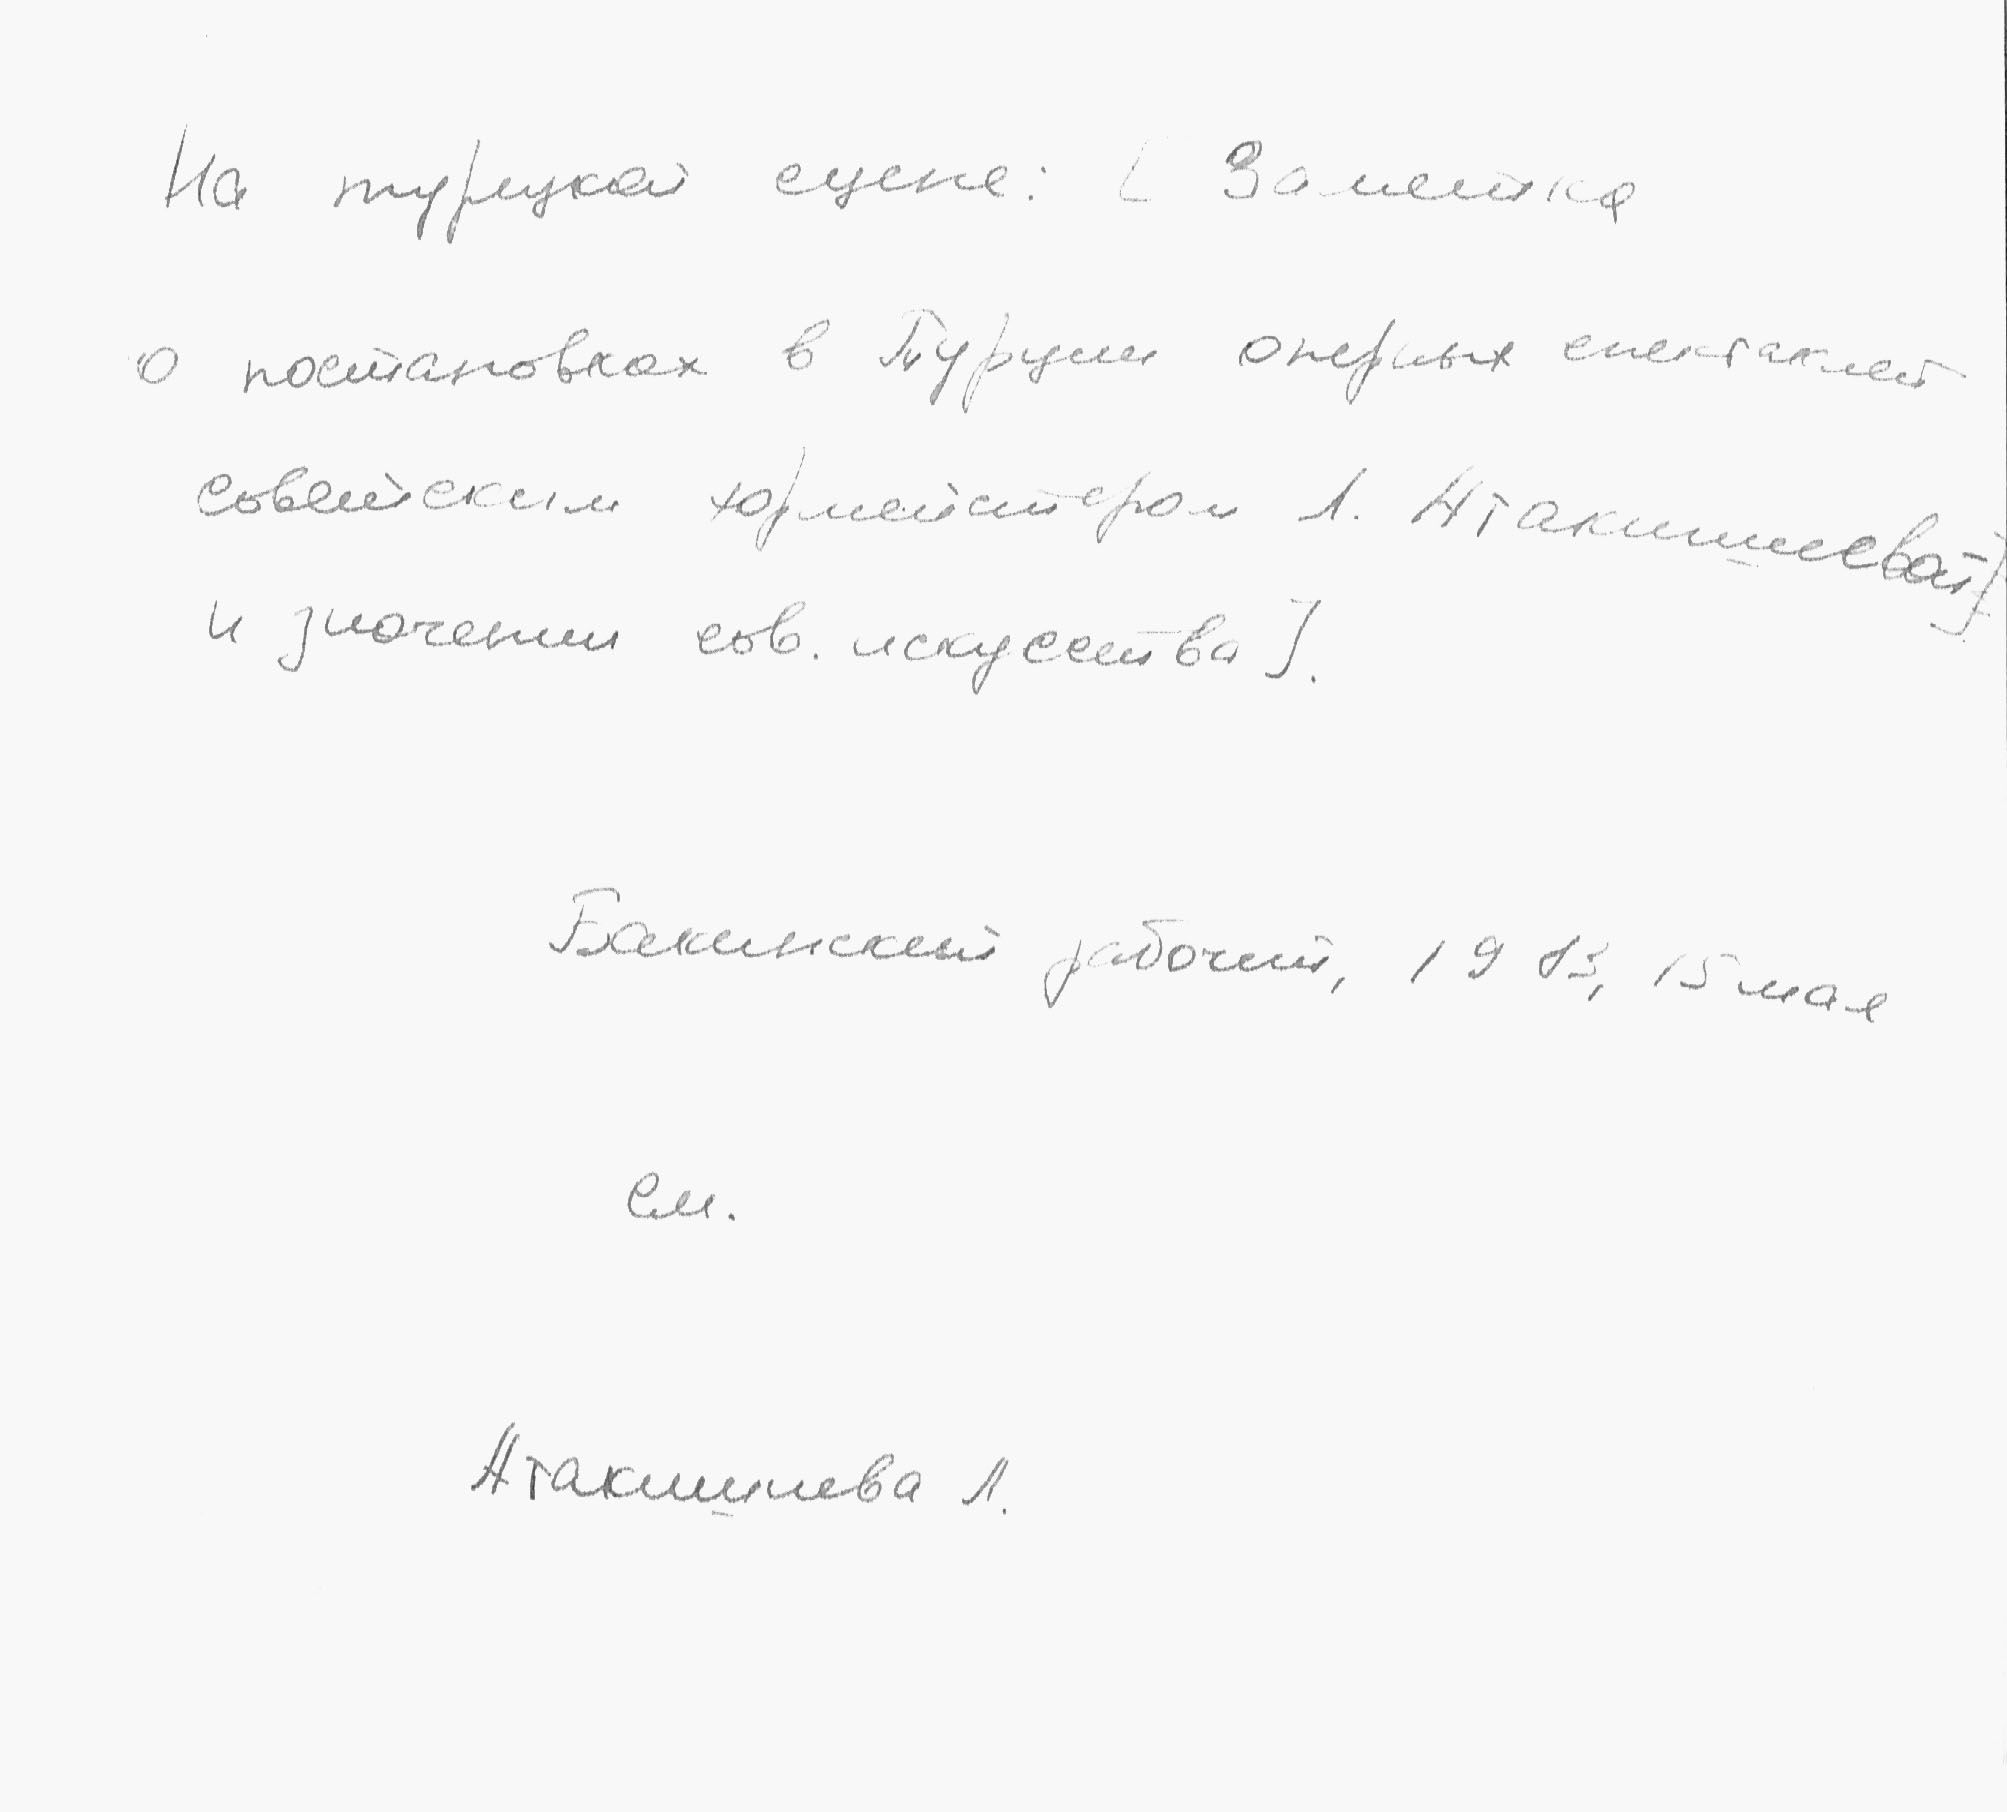 На турецкой сцене: [Заметка
о постановках в Турции оперных спектаклей
советским хормейстером Л. Атакишиевой]
и значении сов. искусства].
Бакинский рабочий, 1983, 15 мая
См.
Атакишиева Л.